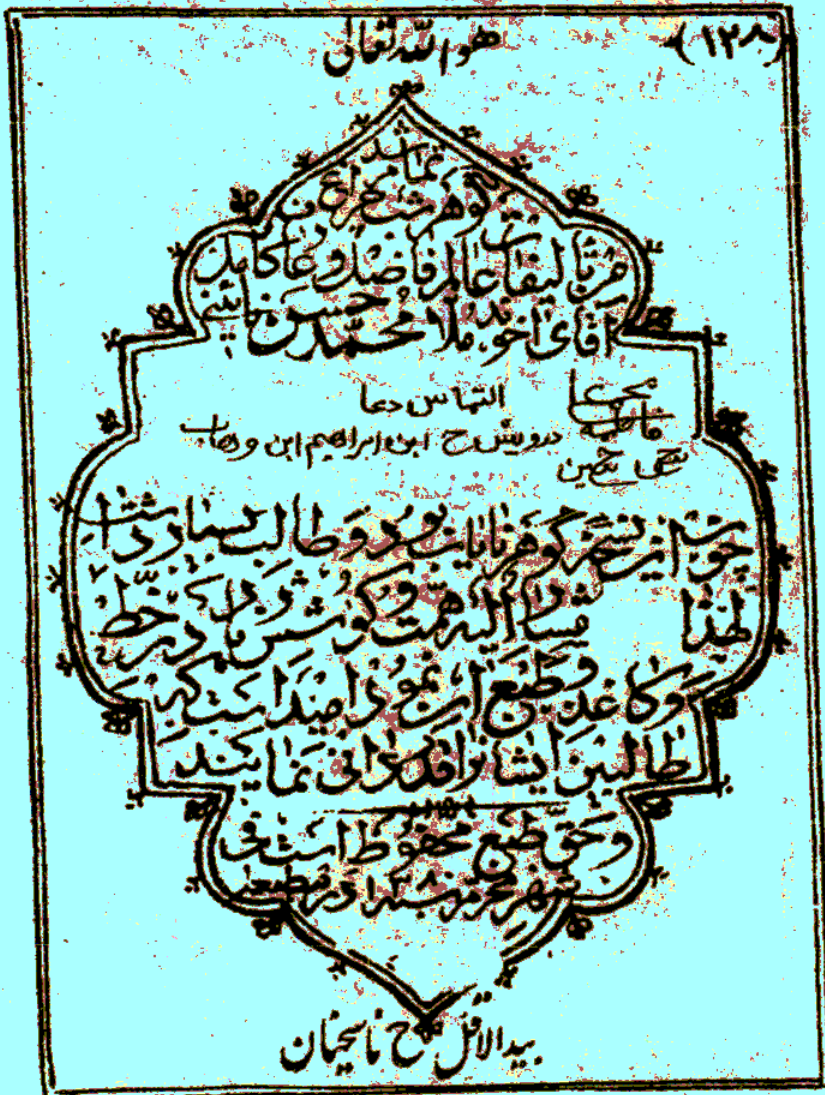 (۱۲۸)
هو الله تعالی
تمام شد
گوهر شب چراغ
من تألیفات عالم فاضل و عا کامل
آقای آخوند ملا محمد حسن نائینی
التماس دعا
درویش ح ابن ابراهیم ابن وهاب
چون این نسخه گوهر نایاب بود و طالب بسیار داشت
لهذا مشار الیه همت و کوشش در خط
و کاغذ و طبع آن نموده امید است که
طالبین ایشانرا قدردانی نمایند
و حق طبع محفوظ است فی
شهر محرم در مطبعه
بید الاقل ح